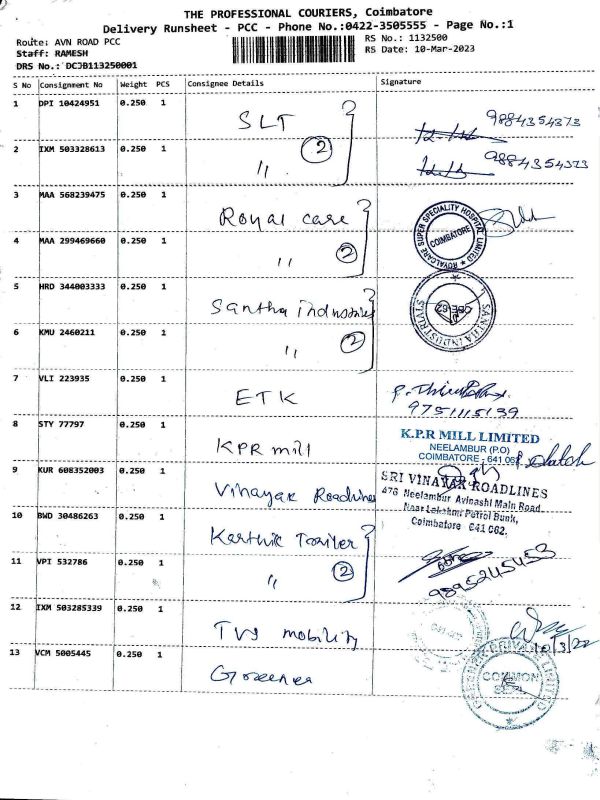 THE PROFESSIONAL COURIERS, Coimbatore
Delivery Runsheet - PCC - Phone No.:0422-3505555 - Page No.:1
Route: AVN ROAD PCC
RS No.: 1132500
Staff: RAMESH
RS Date: 10-Mar-2023
DRS No.: DCJB113250001
S No Consignment No Weight PCS Consignee Details Signature
1 DPI 10424951 0.250 1 SLT 9884354373
2 IXM 503328613 0.250 1 " 2 9884354373
3 MAA 568239475 0.250 1 Royal care
ROYALCARE SUPER SPECIALITY HOSPITAL LIMITED
COIMBATORE
4 MAA 299469660 0.250 1 " 2
5 HRD 344003333 0.250 1 Santha industries
SANTHA INDUSTRIES
CBE-62
6 KMU 2460211 0.250 1 " 2
7 VLI 223935 0.250 1 ETK
9751115139
8 STY 77797 0.250 1 KPR mill
K.P.R MILL LIMITED
NEELAMBUR (P.O)
COIMBATORE - 641 062
9 KUR 608352003 0.250 1 Vinayak Roadlines
SRI VINAYAK ROADLINES
476 Neelambur Avinashi Main Road
Near Lakshmi Petrol Bunk,
Coimbatore 641 062.
10 BWD 30486263 0.250 1 Karthik Trailer
11 VPI 532786 0.250 1 " 2
9895245453
12 IXM 503285339 0.250 1 TVS mobility
13 VCM 5005445 0.250 1
COMMON
SEAL